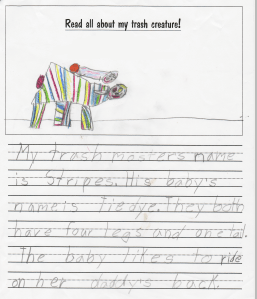 Read all about my trash creature!
My trash masters name
is Stripes. His baby's
name is Tiedye. They both
have four legs and one tail.
The baby likes to ride
on her daddy's back.